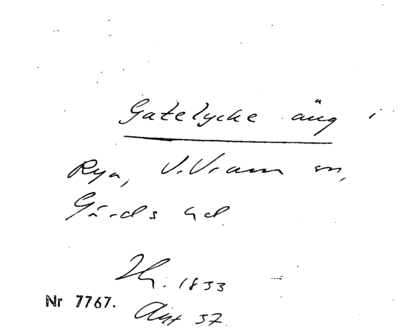 Gatelycke äng i
Rya, V. Vram sn,
Gärds hd.
Th. 1833
Nr 7767.
Akt 37.